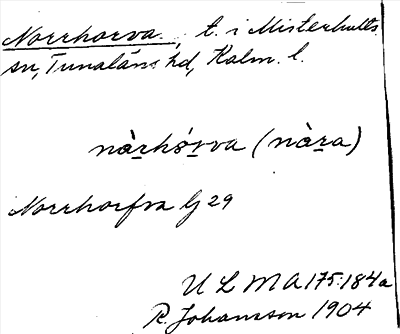 Norrhorva, t. i Misterhults
sn, Tunaläns hd, Kalm. l.
nàrhórva (nàra)
Norrhorfva Gj 29
U L M A 175:184a
R. Johansson 1904